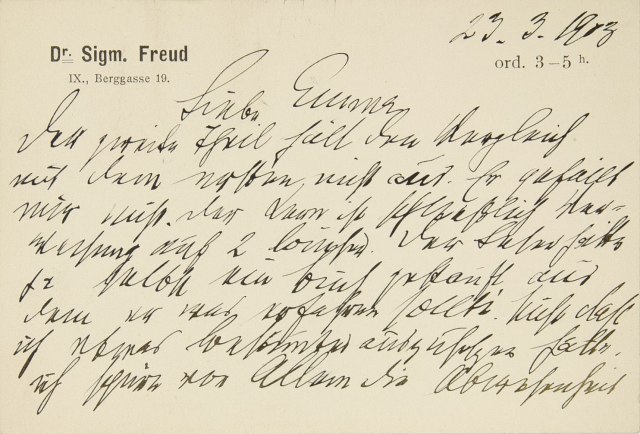 23. 3. 1903
Dr. Sigm. Freud
IX., Berggasse 19.
ord. 3–5 h.
Liebe Emma
Der zweite Theil hält den Vergleich
mit dem ersten nicht aus. Er gefällt
mir nicht. der Kern ist schließlich
auf 2 Der Leser hätte
selbst ein Buch gekauft aus
dem er was erfahren sollte. Nicht daß
ich etwas bestimmtes auszusetzen hätte.
ich spüre vor Allem die Abwesenheit